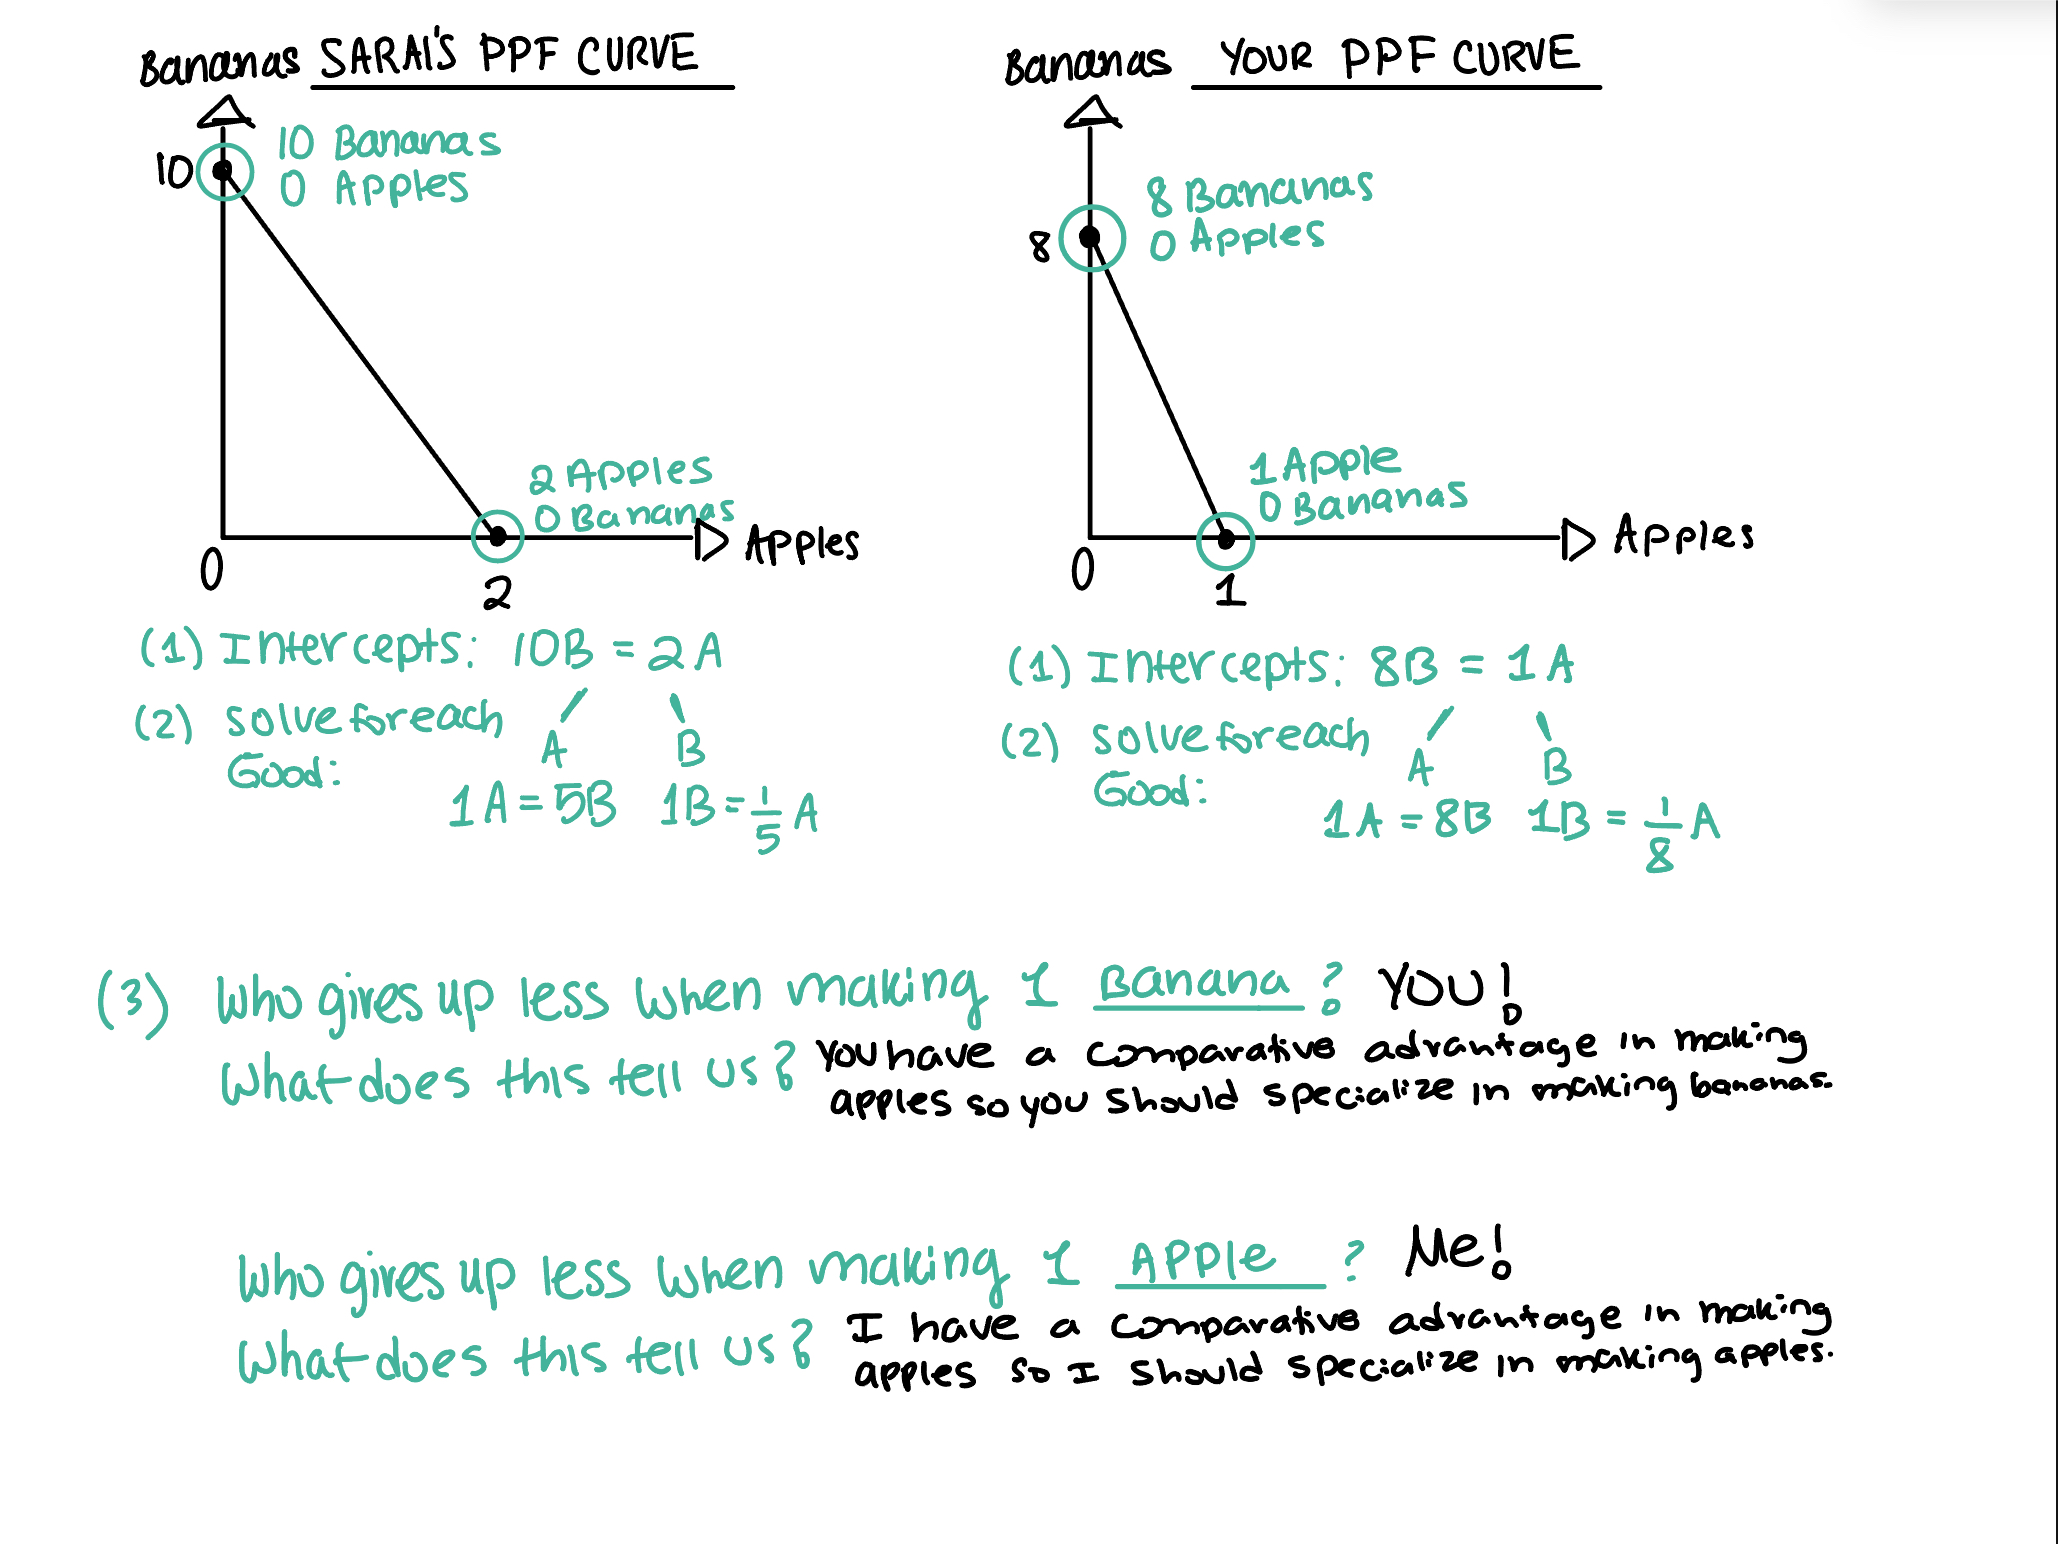 Bananas SARAI'S PPF CURVE
10 Bananas
0 Apples
10
2 Apples
0 Bananas
Apples
0
2
(1) Intercepts: 10B = 2A
(2) solve for each
Good:
A B
1A = 5B 1B = 1/5 A
Bananas YOUR PPF CURVE
8 Bananas
0 Apples
8
1 Apple
0 Bananas
Apples
0
1
(1) Intercepts: 8B = 1A
(2) solve for each
Good:
A B
1A = 8B 1B = 1/8 A
(3) Who gives up less when making 1 Banana? YOU!
What does this tell us? You have a comparative advantage in making
apples so you should specialize in making bananas.
Who gives up less when making 1 APPle ? Me!
What does this tell us? I have a comparative advantage in making
apples so I should specialize in making apples.